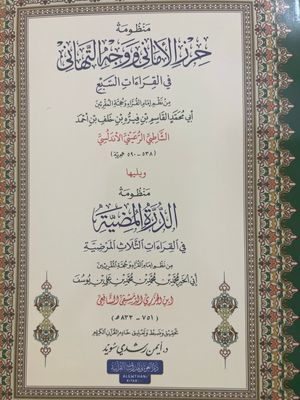 منظومة
حرز الأماني ووجه التهاني
في القراءات السبع
من نظم إمام القراء وحجة المقرئين
أبي محمد القاسم بن فيره بن خلف بن أحمد
الشاطبي الرعيني الأندلسي
(٥٣٨ - ٥٩٠ هجرية)
ويليها
منظومة
الدرة المضية
في القراءات الثلاث المرضية
من نظم إمام القراء وحجة المقرئين
أبي الخير محمد بن محمد بن محمد بن علي بن يوسف
ابن الجزري الدمشقي الشافعي
(٧٥١ - ٨٣٣ هـ)
تحقيق وضبط وتدقيق خادم القرآن الكريم
د. أيمن رشدي سويد